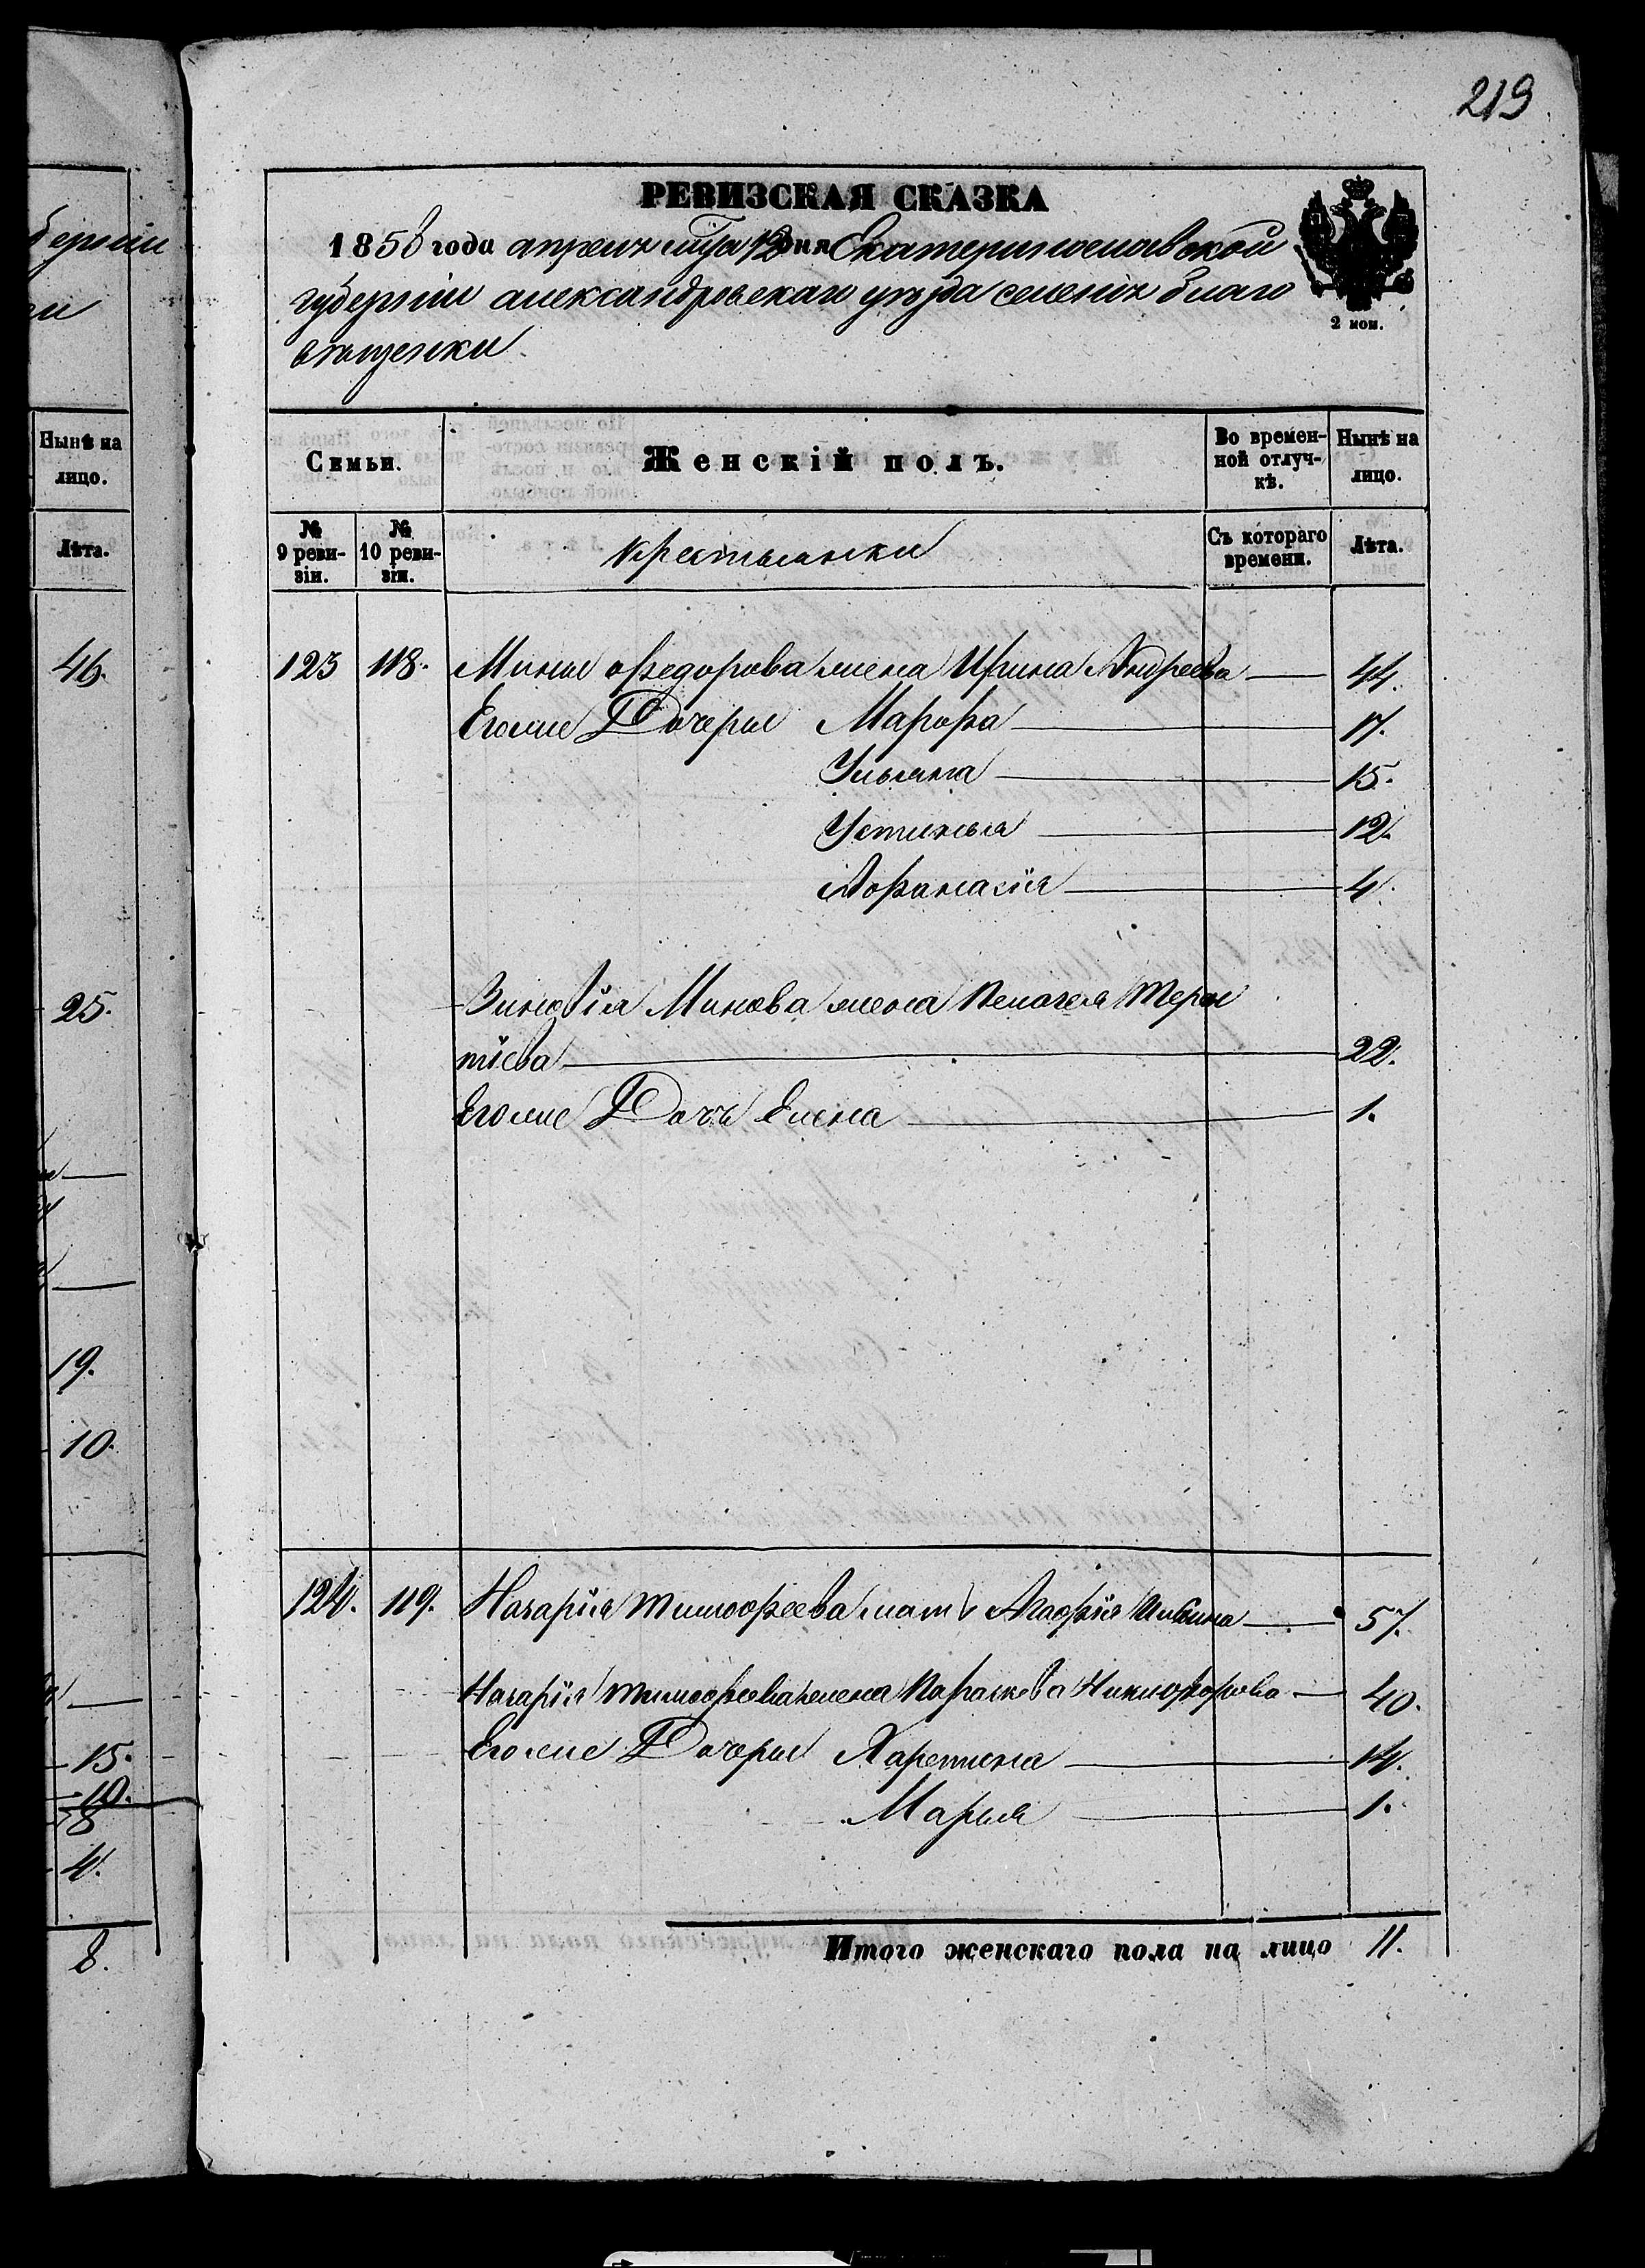 219
РЕВИЗСКАЯ СКАЗКА
1858 года апреля мца 12 дня Екатеринославской
губерніи александровскаго уѣзда селенія благо
вѣщенки
2 коп.
Семьи.
Женскій полъ.
Во времен-
ной отлуч-
кѣ.
Нынѣ на
лицо.
№
9 реви-
зіи.
№
10 реви-
зіи.
крестьянки
Съ котораго
времени.
Лѣта.
123 118. Мины Федорова жена Ирина Андреева 44.
Егоже Дочери Марфа 17.
Ульяна 15.
Устинья 12.
Афанасія 4.
Зиновія Минова жена Пелагея Терен
тіева 22.
Егоже Дочь Елена 1.
124. 119. Назарія тимофеева мать Агафія 57.
Назарія тимофеева жена Параскева Никифорова 40.
Егоже Дочери Харетина 14.
Марья 1.
Итого женскаго пола на лицо 11.
берніи
Нынѣ на
лицо.
Лѣта.
46.
25.
19.
10.
15.
10.
8
4.
8.